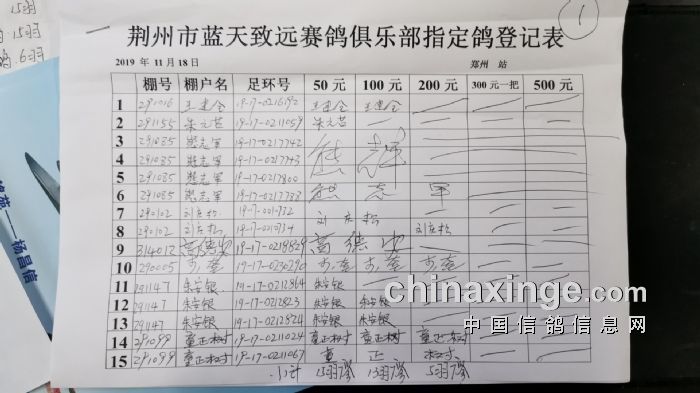 15羽
15羽
6羽
1
荆州市蓝天致远赛鸽俱乐部指定鸽登记表
2019 年 11月18日 郑州 站
棚号 棚户名 足环号 50 元 100 元 200 元 300元一把 500 元
1 291016 王建全 19-17-0216192 王建全 王建全
2 291155 朱元苔 19-17-0211059 朱元苔
3 291085 熊志军 19-17-0217742
4 291085 熊志军 19-17-0217743
5 291085 熊志军 19-17-0217800
6 291085 熊志军 19-17-0217788 熊 志 军
7 290102 刘启松 19-17-0010732
8 290102 刘启松 19-17-0210734 刘启松 刘启松
9 314012 高德安 19-17-0218829 高德安
10 290005 19-17-0230290
11 291147 朱安银 19-17-0212864 朱安银
12 291147 朱安银 19-17-0212823 朱安银 朱安银
13 291147 朱安银 19-17-0212824 朱安银 朱安银
14 291099 童正树 19-17-0211024 童正树 童正树 童正树
15 291099 童正树 19-17-0211067 童 正 树
小计 15羽 13羽 5羽
杨昌信
chinaxinge.com
中国信鸽信息网